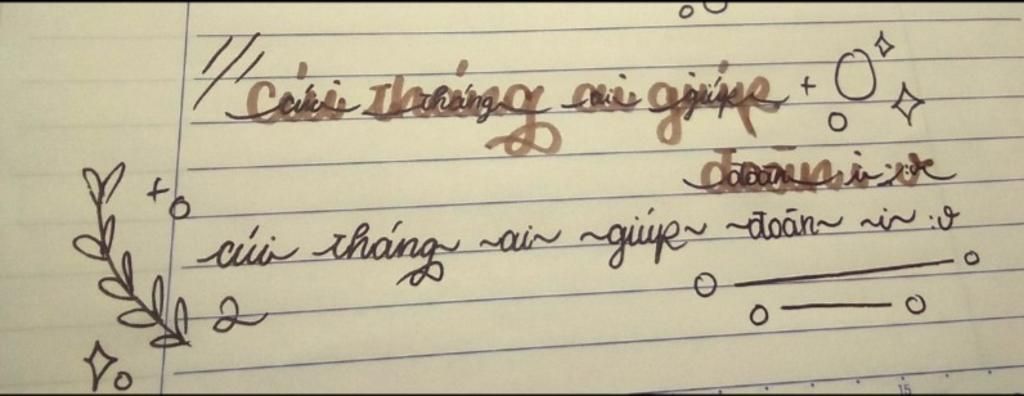 cúi tháng ai giúp
đoãn i :v
cúi tháng ~ai~ ~giúp~ ~đoãn~ ~i~ :v
2
15